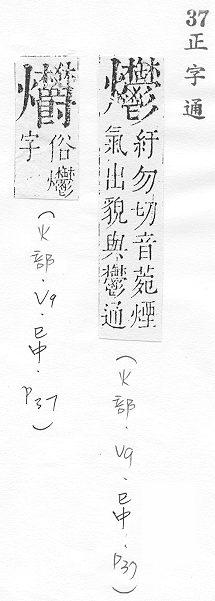 37正字通
爩
紆勿切音菀煙
氣出貌與鬱通
(火部·V9·巳中·P37)
俗爩
字
(火部·V9·巳中·P37)